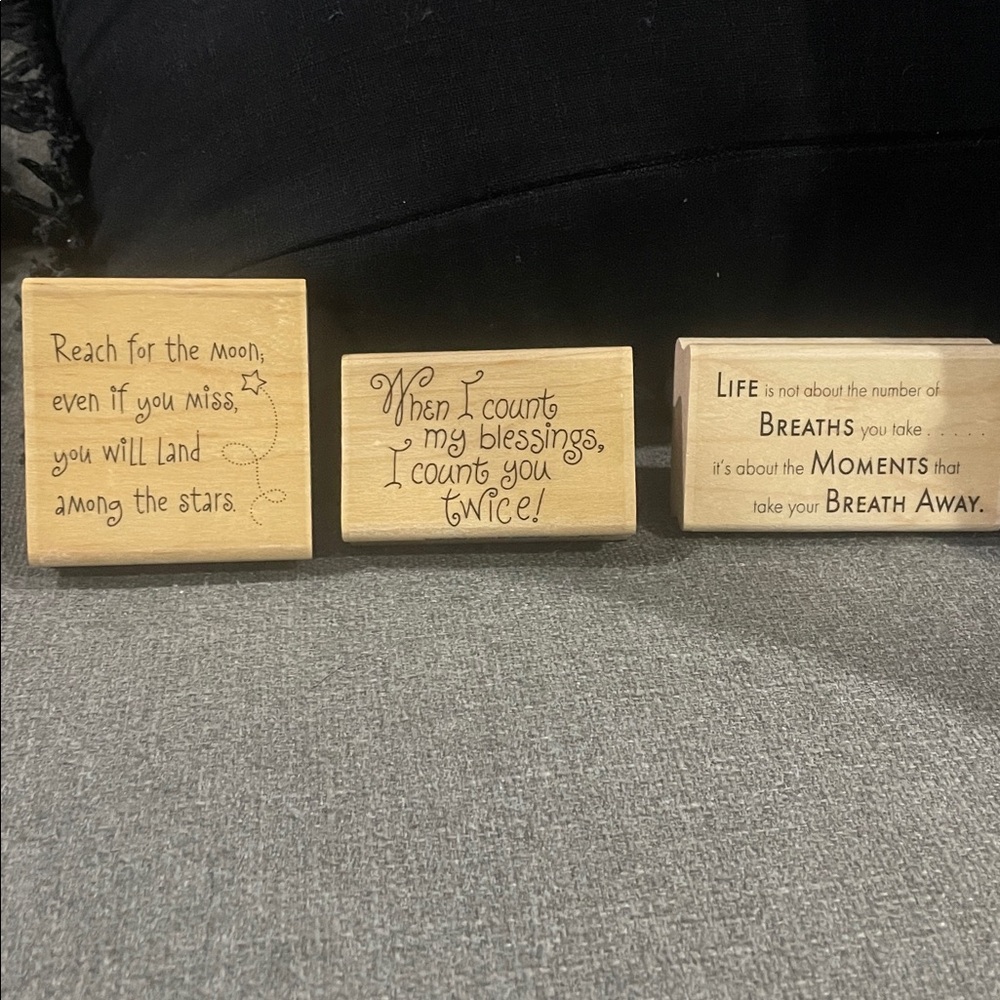 Reach for the moon;
even if you miss,
you will land
among the stars.
When I count
my blessings,
I count you
twice!
LIFE is not about the number of
BREATHS you take . . . . .
it's about the MOMENTS that
take your BREATH AWAY.